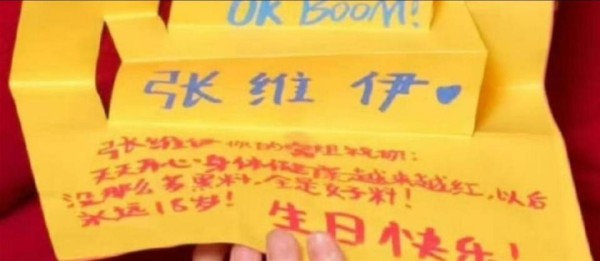 UR BOOM!
张维伊
张维伊你的宝姐祝你:
天天开心,身体健康,越来越红,以后
没那么多黑料,全是好料!
永远18岁!
生日快乐!